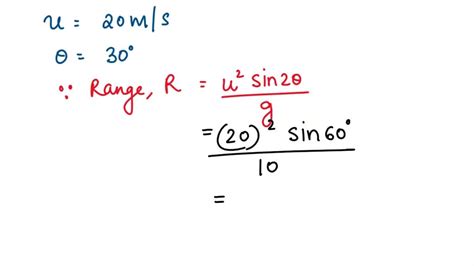 u = 20m/s
θ = 30°
∵ Range, R = u² sin2θ / g
= (20)² sin60° / 10
=